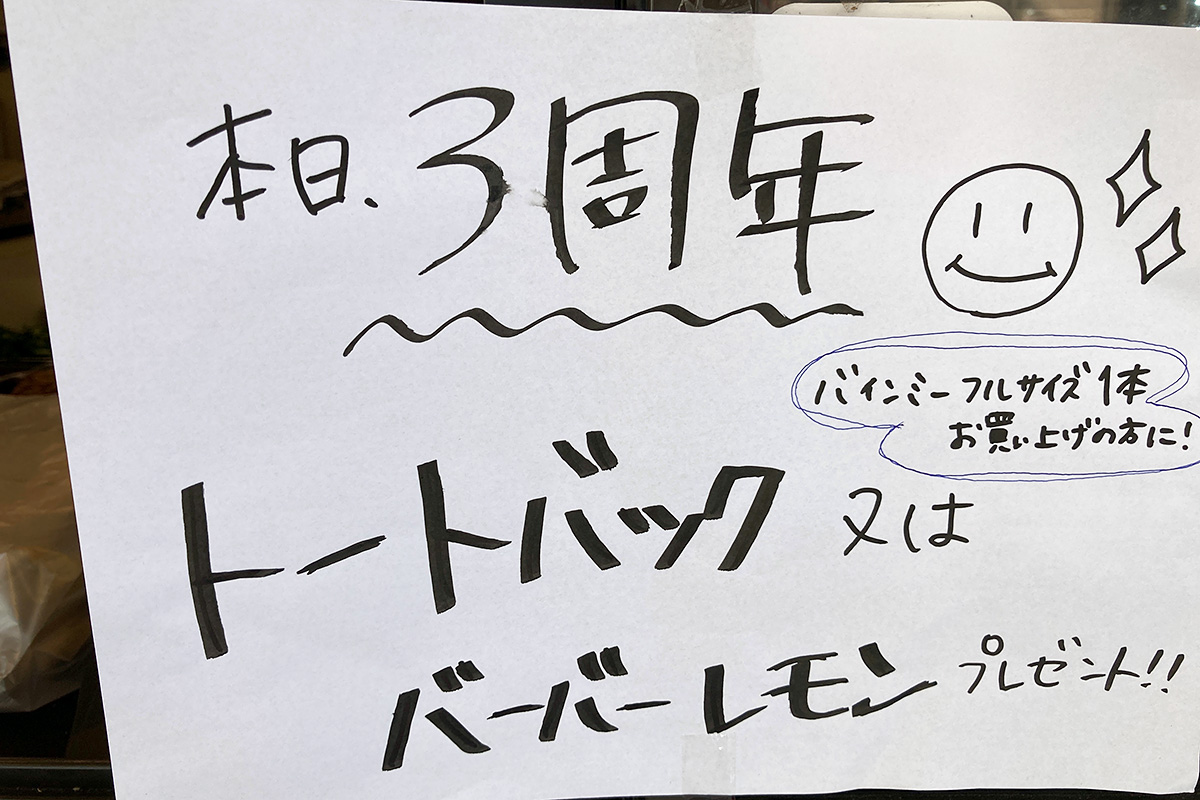 本日、3周年
バインミーフルサイズ1本
お買い上げの方に!
トートバック又は
バーバーレモンプレゼント!!